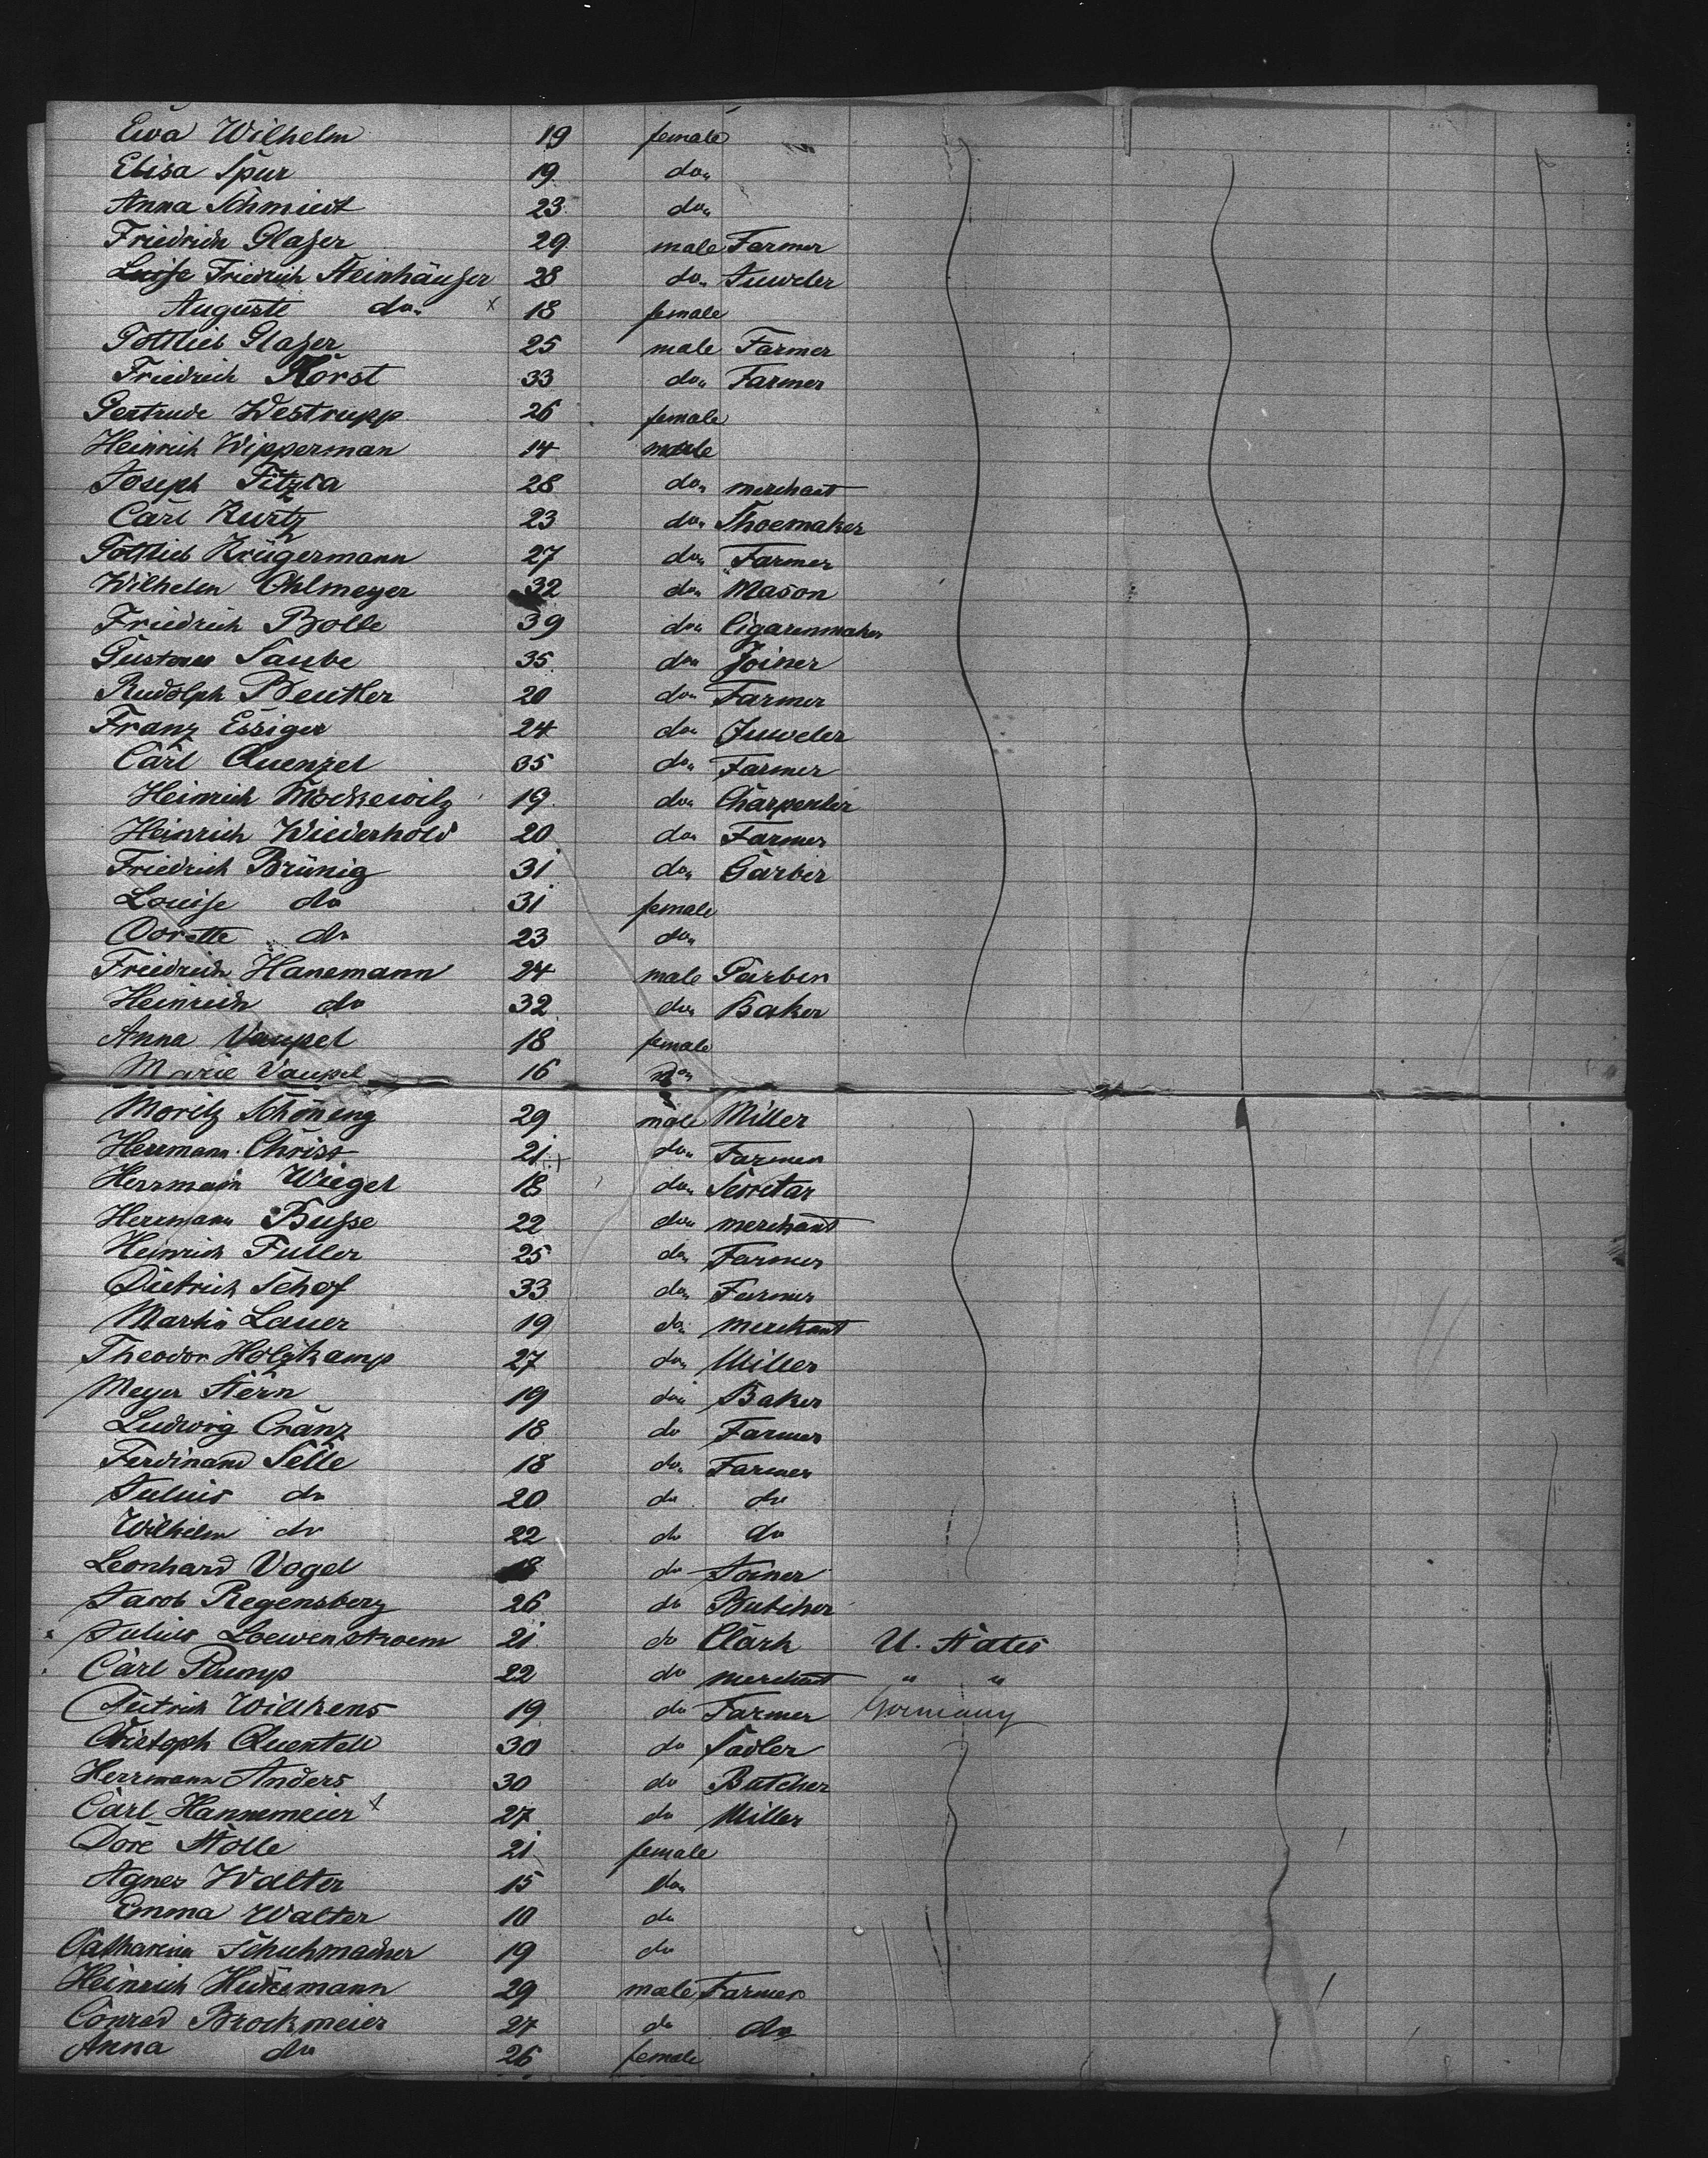 Ewa Wilhelm 19 female
Elisa Spur 19 do„
Anna Schmidt 23 do„
Friedrich Glaser 29 male Farmer
Luise Friedrich Steinhäuser 28 do„ Juweler
Auguste do„ x 18 female
Gottlieb Glaser 25 male Farmer
Friedrich Horst 33 do„ Farmer
Gertrude Westrupp 26 female
Heinrich Wipperman 14 male
Joseph 28 do„ merchant
Carl Kurtz 23 do„ Shoemaker
Gottlieb Krügermann 27 do„ Farmer
Wilhelm Ohlmeyer 32 do„ Mason
Friedrich Bolle 39 do„ Cigarenmaker
Gustav Taube 35 do„ Joiner
Rudolph Beutler 20 do„ Farmer
Franz Essiger 24 do„ Juweler
Carl Quenzel 35 do„ Farmer
Heinrich Mockewitz 19 do„ Charpenter
Heinrich Wiederhold 20 do„ Farmer
Friedrich Brünig 31 do„ Garber
Louise do 31 female
Dorette do 23 do„
Friedrich Hanemann 24 male Garber
Heinrich do 32 do„ Baker
Anna Vaupel 18 female
Marie Vaupel 16 do„
Moritz Schöneng 29 male Miller
Herrmann Christ 21 do„ Farmer
Herrmann Wiegel 18 do„ Secretar
Herrmann Busse 22 do„ merchant
Heinrich Fuller 25 do„ Farmer
Dietrich Schof 33 do„ Farmer
Martin Lauer 19 do„ merchant
Theodor Holzkamp 27 do„ Miller
Meyer Stern 19 do„ Baker
Ludwig Cranz 18 do Farmer
Ferdinand Selle 18 do„ Farmer
Julius do 20 do do
Wilhelm do 22 do do
Leonhard Vogel 18 do Joiner
Jacob Regensberg 26 do Butcher
Julius Loewenstroem 21 do Clark U. States
Carl Plump 22 do merchant " "
Dietrich Wilkens 19 do Farmer Germany
Christoph Quentell 30 do Sadler
Herrmann Anders 30 do Butcher
Carl Hannemeier x 27 do Miller
Dore Stolle 21 female
Agnes Walter 15 do„
Emma Walter 10 do
Catharina Schuhmacher 19 do
Heinrich Hünemann 29 male Farmer
Conrad Brockmeier 27 do do
Anna do 26 female